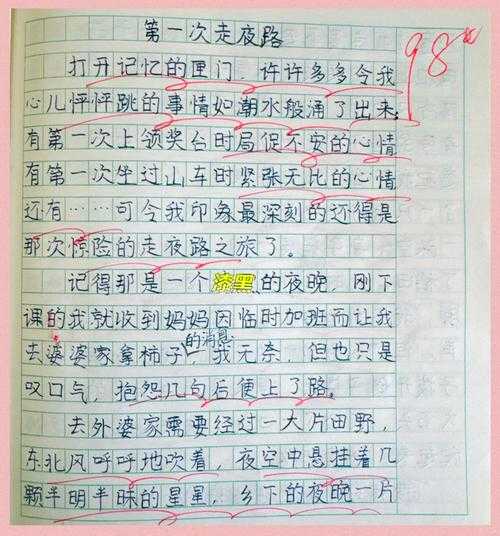 第一次走夜路
98
打开记忆的匣门，许许多多令我
心儿怦怦跳的事情如潮水般涌了出来；
有第一次上领奖台时局促不安的心情
有第一次坐过山车时紧张无比的心情
还有……可令我印象最深刻的还得是
那次惊险的走夜路之旅了。
记得那是一个漆黑的夜晚，刚下
课的我就收到妈妈因临时加班而让我
去婆婆家拿柿子的消息，我无奈，但也只是
叹口气，抱怨几句后便上了路。
去外婆家需要经过一大片田野，
东北风呼呼地吹着，夜空中悬挂着几
颗半明半昧的星星，乡下的夜晚一片